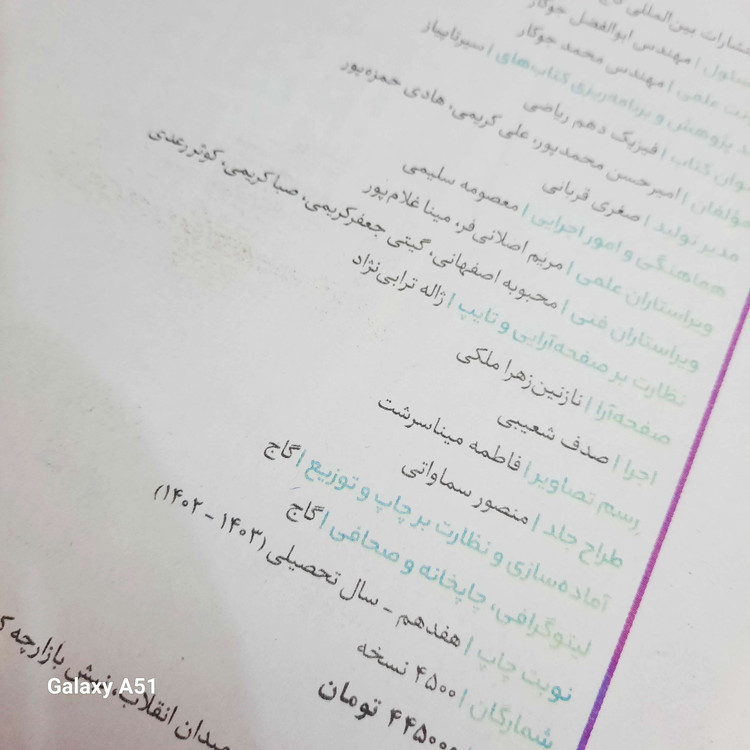 انتشارات بین‌المللی
مسئول | مهندس ابوالفضل جوکار
علمی | مهندس محمد جوکار
پژوهش و برنامه‌ریزی کتاب‌های | سیرتاپیاز
عنوان کتاب | فیزیک دهم ریاضی
مؤلفان | امیرحسن محمدپور، علی کریمی، هادی حمزه‌پور
مدیر تولید | صغری قربانی
هماهنگی و امور اجرایی | معصومه سلیمی
ویراستاران علمی | مریم اصلانی‌فر، مینا غلام‌پور
ویراستاران فنی | محبوبه اصفهانی، گیتی جعفرکریمی، صبا کریمی، کوثر رعدی
نظارت بر صفحه‌آرایی و تایپ | ژاله ترابی‌نژاد
صفحه‌آرا | نازنین‌زهرا ملکی
اجرا | صدف شعیبی
رسم تصاویر | فاطمه میناسرشت
طراح جلد | منصور سماواتی
آماده‌سازی و نظارت بر چاپ و توزیع | گاج
لیتوگرافی، چاپخانه و صحافی | گاج
نوبت چاپ | هفدهم - سال تحصیلی (۱۴۰۳ - ۱۴۰۲)
شمارگان | ۴۵۰۰ نسخه
تومان
میدان انقلاب، نبش بازارچه
Galaxy A51